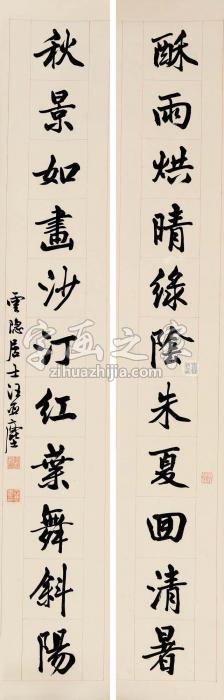 酥雨烘晴綠陰朱夏回清暑
秋景如畫沙汀紅葉舞斜陽
雲隐居士汪亞塵
字画家
zihuazhijia.com